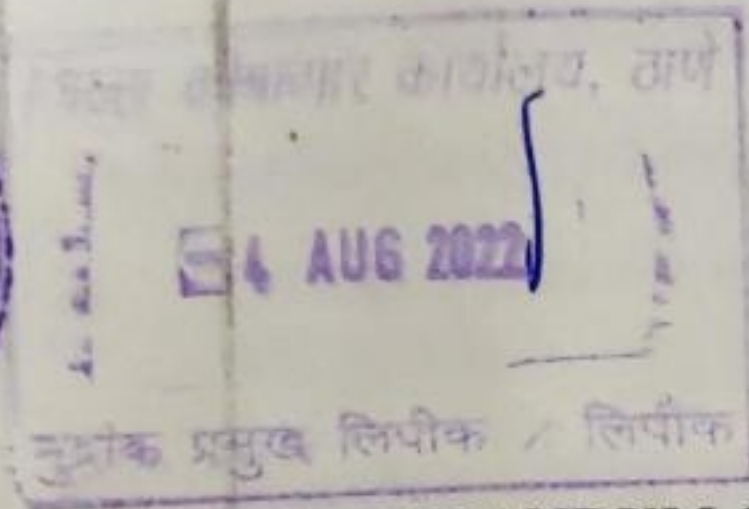 जिल्हा कोषागार कार्यालय, ठाणे
4 AUG 2022
मुद्रांक प्रमुख लिपीक / लिपीक